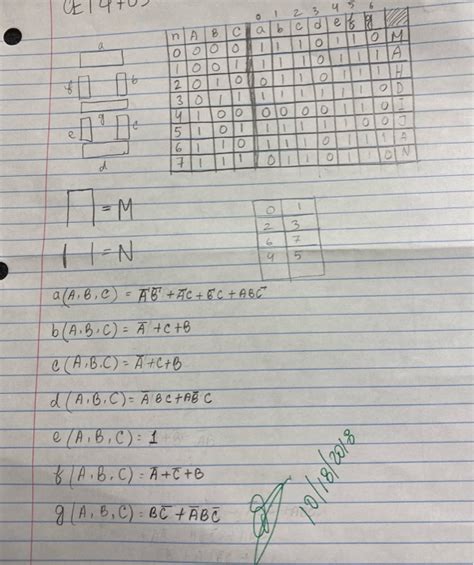 0 1 2 3 4 5 6
n A B C a b c d e f g
0 0 0 0 1 1 1 0 1 1 0 M
1 0 0 1 1 1 1 0 1 1 1 A
2 0 1 0 0 1 1 0 1 1 1 H
3 0 1 1 1 1 1 1 1 1 0 D
4 1 0 0 0 0 0 0 1 1 0 I
5 1 0 1 1 1 1 1 0 0 J
6 1 1 0 1 1 1 0 1 1 1 A
7 1 1 1 0 1 1 0 1 1 0 N
a
f b
g
e c
d
= M
= N
0 1
2 3
6 7
4 5
a(A,B,C) = A̅B̅ + A̅C + B̅C + ABC̅
b(A,B,C) = A̅ + C + B
c(A,B,C) = A̅ + C + B
d(A,B,C) = A̅BC + AB̅C
e(A,B,C) = 1
f(A,B,C) = A̅ + C̅ + B
g(A,B,C) = BC̅ + A̅B̅C
10/18/2018